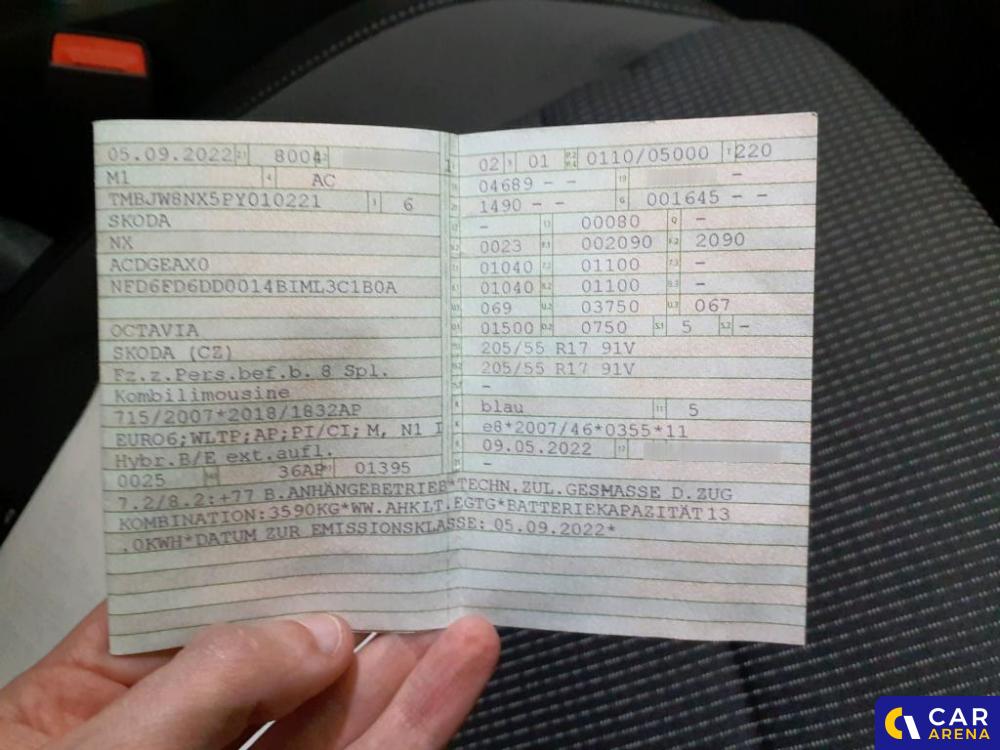 05.09.2022 2.1 8004
M1 4 AC
TMBJW8NX5PY010221 3 6
SKODA
NX
ACDGEAX0
NFD6FD6DD0014BIML3C1B0A
OCTAVIA
SKODA (CZ)
Fz.z.Pers.bef.b. 8 Spl.
Kombilimousine
715/2007*2018/1832AP
EURO6;WLTP;AP;PI/CI; M, N1 I
Hybr.B/E ext.aufl.
0025 36AP 01395
02 01 0110/05000 T 220
04689 - - -
1490 - - G 001645 - -
- 00080 Q -
0023 F.1 002090 F.2 2090
01040 7.2 01100 7.3 -
01040 8.2 01100 8.3 -
069 U.2 03750 U.3 067
01500 O.2 0750 S.1 5 S.2 -
205/55 R17 91V
205/55 R17 91V
-
blau 11 5
e8*2007/46*0355*11
09.05.2022 17
-
7.2/8.2:+77 B.ANHÄNGEBETRIEB*TECHN.ZUL.GESMASSE D.ZUG
KOMBINATION:3590KG*WW.AHKLT.EGTG*BATTERIEKAPAZITÄT13
.0KWH*DATUM ZUR EMISSIONSKLASSE: 05.09.2022*
CAR
ARENA